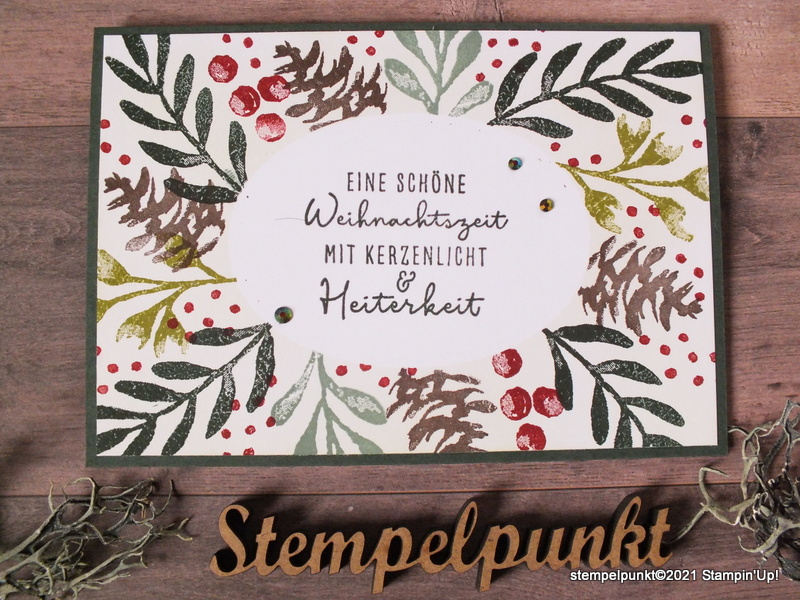 EINE SCHÖNE
Weihnachtszeit
MIT KERZENLICHT
&
Heiterkeit
Stempelpunkt
stempelpunkt©2021 Stampin'Up!